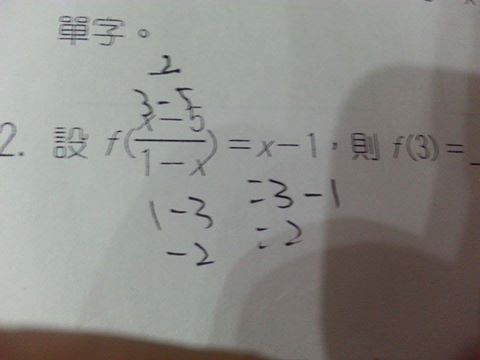 單字。
2
3-5
2. 設 f(x-5/1-x) = x-1,則 f(3)=
1-3 =3-1
-2 =2